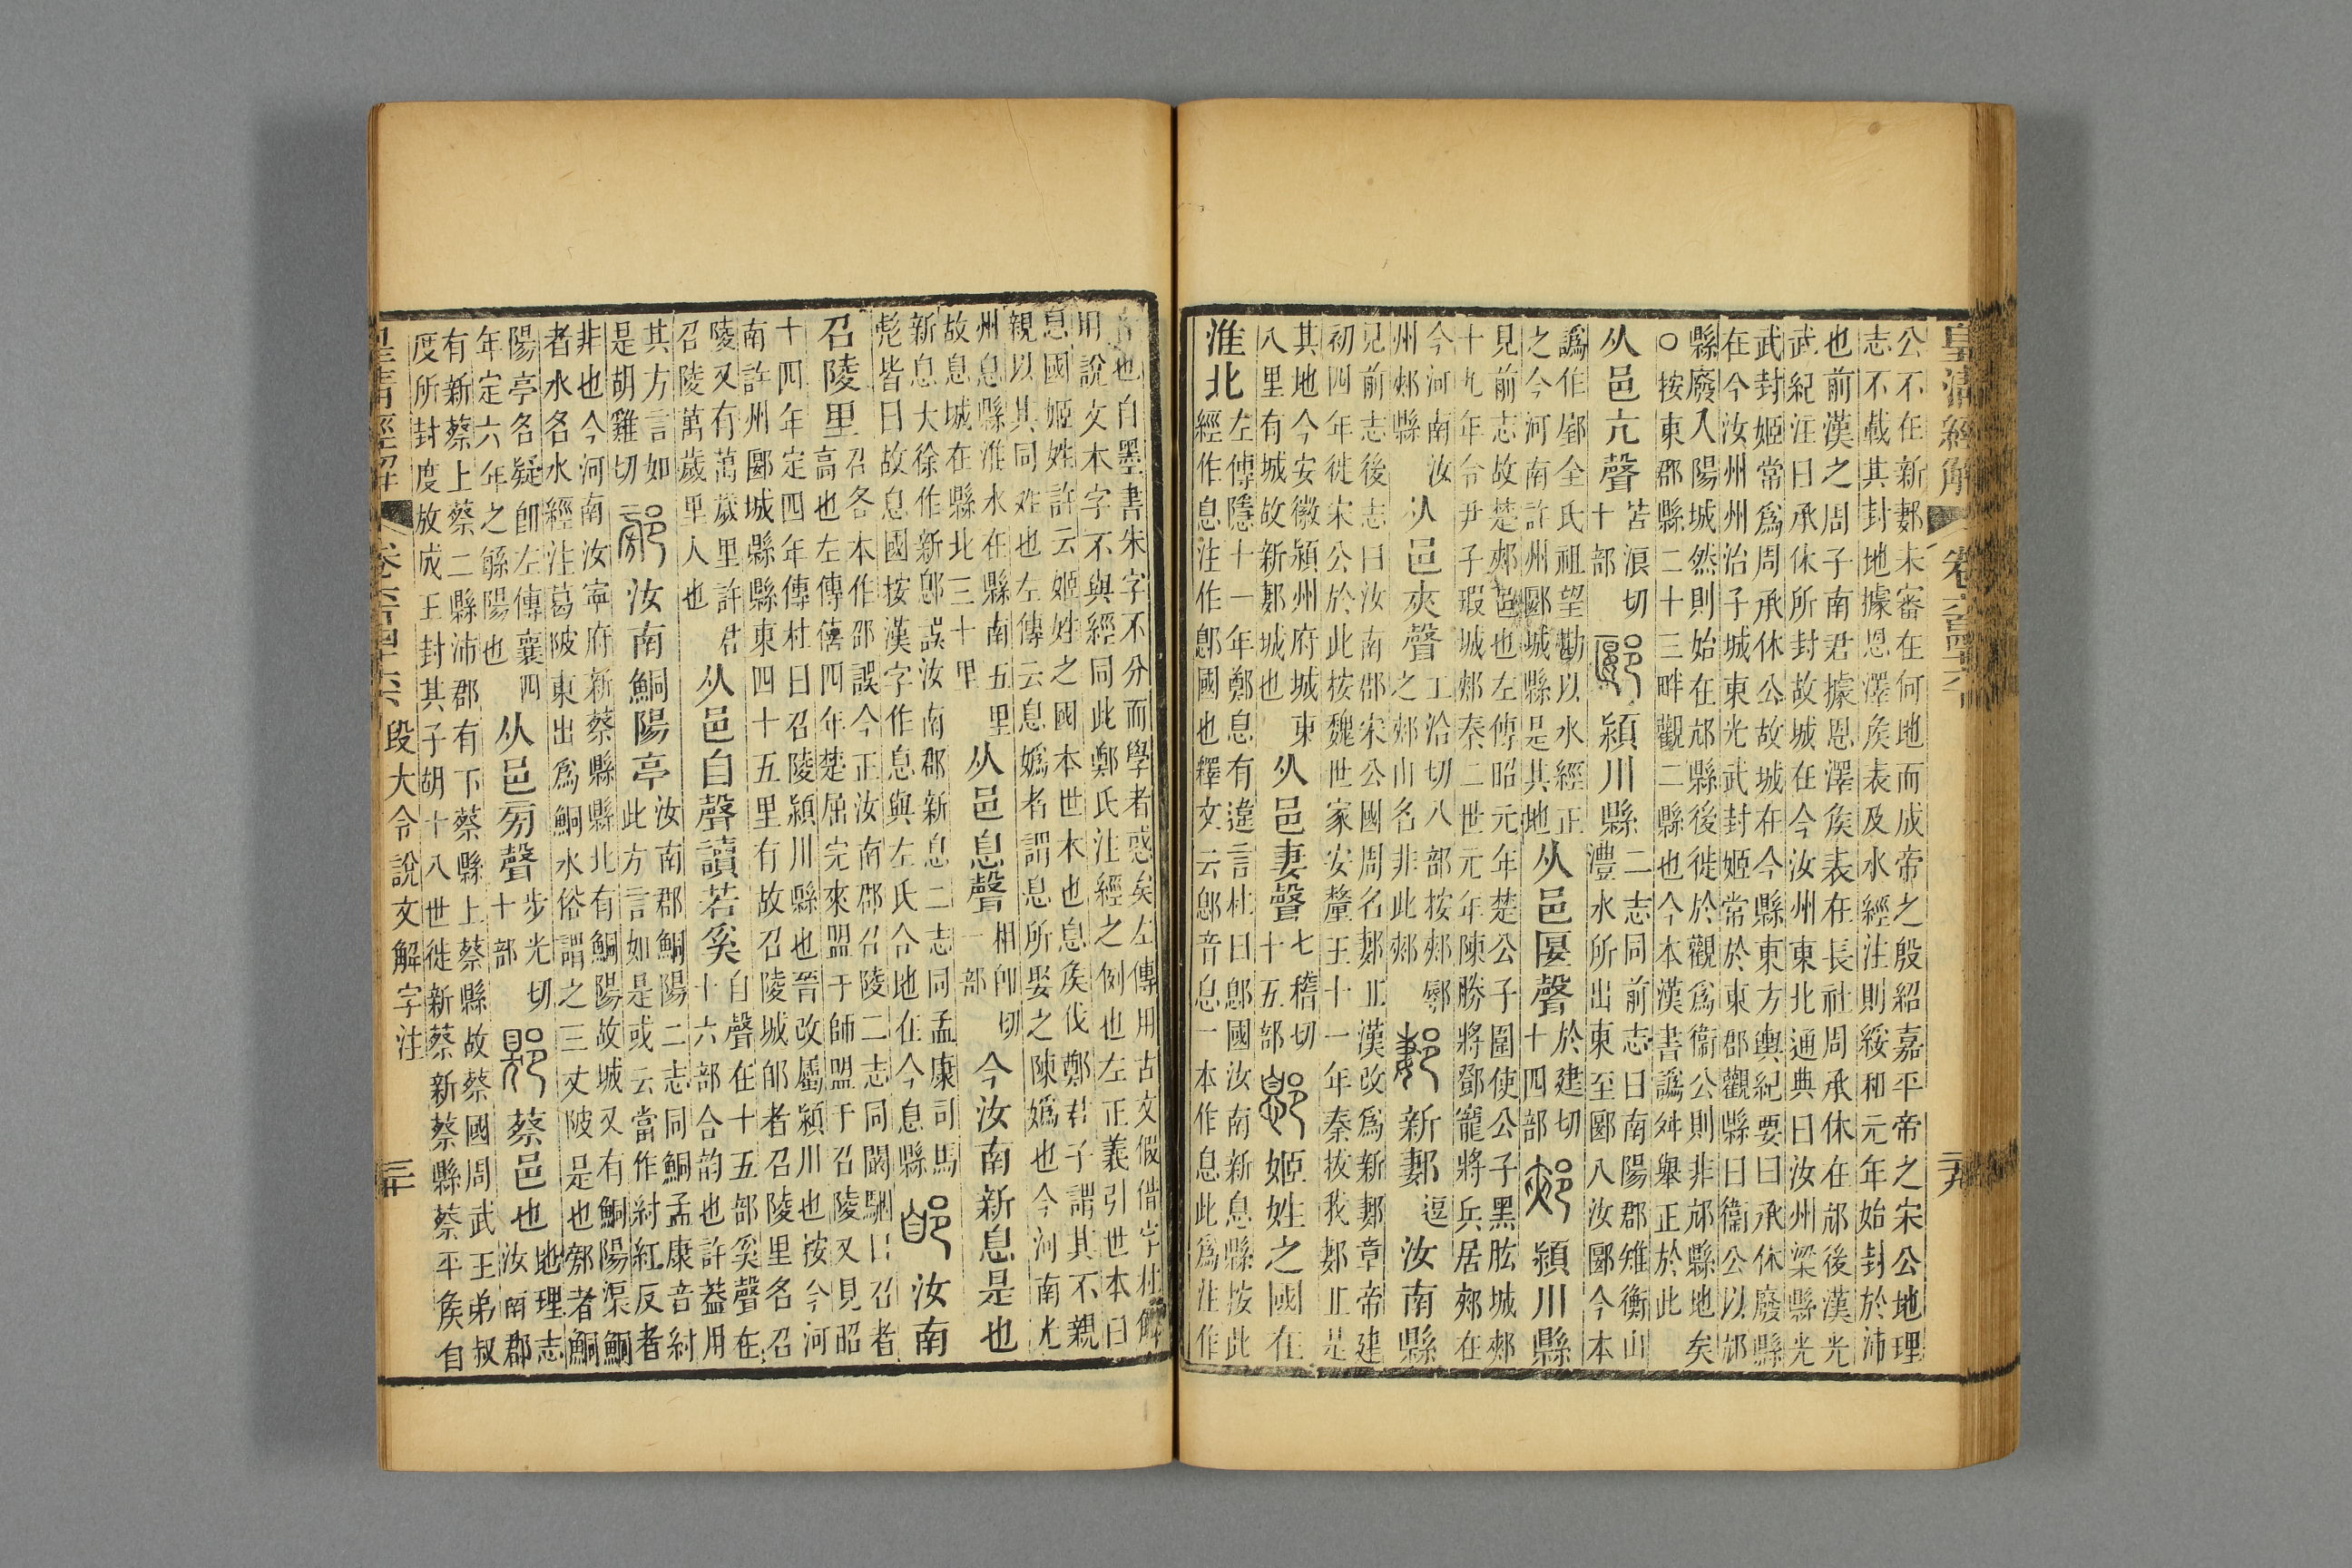 皇清經解 卷六百四十六 二十九
公不在新郪未審在何地而成帝之殷紹嘉平帝之宋公地理
志不載其封地據恩澤矦表及水經注則綏和元年始封於沛
也前漢之周子南君據恩澤矦表在長社周承休在邟後漢光
武紀注曰承休所封故城在今汝州東北通典曰汝州梁縣光
武封姬常爲周承休公故城在今縣東方輿紀要曰承休廢縣
在今汝州州治子城東光武封姬常於東郡觀縣曰衞公以邟
縣廢入陽城然則始在邟縣後徙於觀爲衞公則非邟縣地矣
〇按東郡縣二十三畔觀二縣也今本漢書譌舛舉正於此
从邑亢聲 苦浪切十部 郾 潁川縣 二志同前志曰南陽郡雉衡山
澧水所出東至郾入汝郾今本
譌作 全氏祖望勘以水經正
之今河南許州郾城縣是其地 从邑匽聲 於建切十四部 郟 潁川縣
見前志故楚郟邑也左傳昭元年楚公子圍使公子黑肱城郟
十九年令尹子瑕城郟秦二世元年陳勝將鄧龍將兵居郟在
今河南汝州郟縣 从邑夾聲 工洽切八部按郟鄏之郟山名非此郟 郪 新郪 逗 汝南縣
見前志後志曰汝南郡宋公國周名郪丘漢改爲新郪章帝建
初四年徙宋公於此按魏世家安釐王十一年秦拔我郪丘是
其地今安徽潁州府城東
八里有城故新郪城也 从邑妻聲 七稽切十五部 鄎 姬姓之國在
淮北 左傳隱十一年鄭息有違言杜曰鄎國汝南新息縣按此
經作息注作鄎國也釋文云鄎音息一本作息此爲注作
音也白墨書朱字不分而學者惑矣左傳用古文假借字杜解
用說文本字不與經同此鄭氏注經之例也左正義引世本曰
息國姬姓許云姬姓之國本世本也息矦伐鄭君子謂其不親
親以其同姓也左傳云息嬀者謂息所娶之陳嬀也今河南光
州息縣淮水在縣南五里
故息城在縣北三十里 从邑息聲 相卽切一部 今汝南新息是也
新息大徐作新鄎誤汝南郡新息二志同孟康司馬
彪皆曰故息國按漢字作息與左氏合地在今息縣 郋 汝南
召陵里 召各本作邵誤今正汝南郡召陵二志同闞駰曰召者
高也左傳僖四年楚屈完來盟于師盟于召陵又見昭
十四年定四年傳杜曰召陵潁川縣也晉改屬潁川也按今河
南許州郾城縣縣東四十五里有故召陵城郋者召陵里名召
陵又有萬歲里許君
召陵萬歲里人也 从邑自聲讀若奚 自聲在十五部奚聲在
十六部合韵也許葢用
其方言如
是胡雞切 汝南鮦陽亭 汝南郡鮦陽二志同鮦孟康音紂
此方言如是或云當作紂紅反者
非也今河南汝寧府新蔡縣縣北有鮦陽故城又有鮦陽渠鮦
者水名水經注葛陂東出爲鮦水俗謂之三丈陂是也 者鮦
陽亭名疑卽左傳襄四
年定六年之繇陽也 从邑旁聲 步光切十部 蔡邑也 地理志
汝南郡
有新蔡上蔡二縣沛郡有下蔡縣上蔡縣故蔡國周武王弟叔
度所封度放成王封其子胡十八世徙新蔡新蔡縣蔡平矦自
皇清經解 卷六百四十六 段大令說文解字注 三十